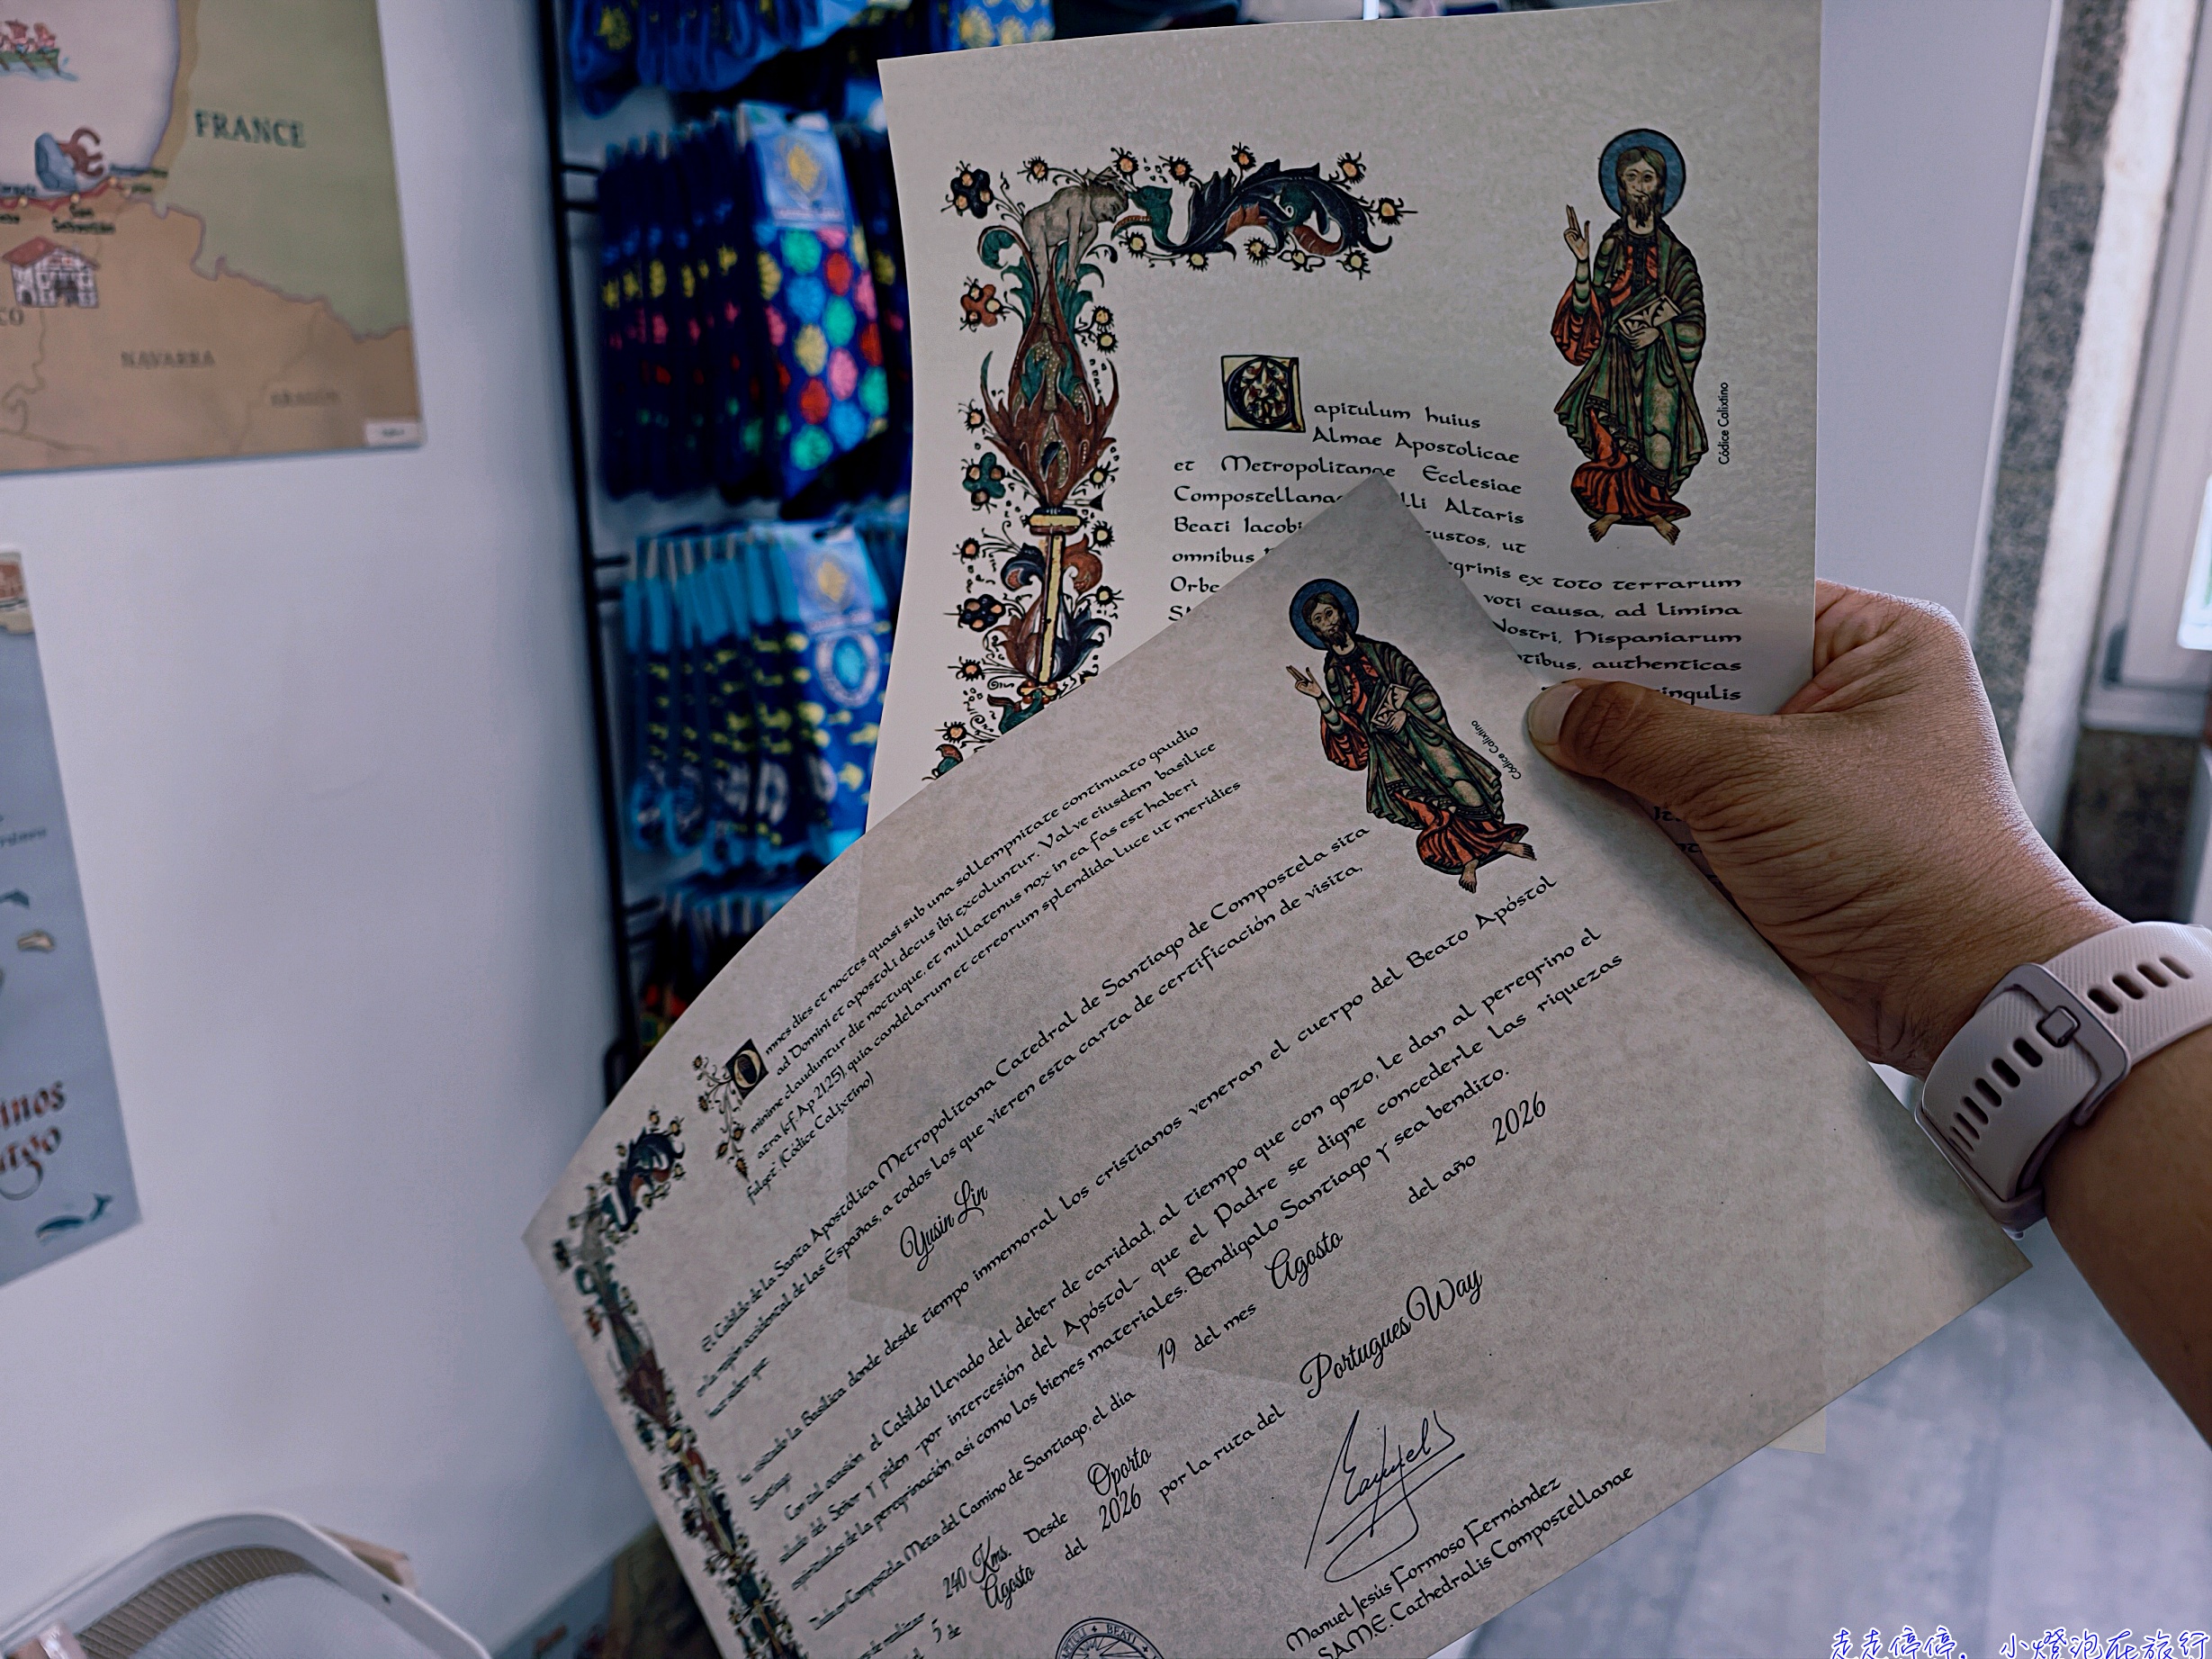 FRANCE
San
Sebastián
NAVARRA
ARAGÓN
Códice Calixtino
Capitulum huius
Almae Apostolicae
et Metropolitanae Ecclesiae
Compostellanae lli Altaris
Beati Iacobi ustos, ut
omnibus grinis ex toto terrarum
Orbe voti causa, ad limina
Nostri, Hispaniarum
tibus, authenticas
singulis
Omnes dies et noctes quasi sub una sollempnitate continuato gaudio
ad Domini et apostoli decus ibi excoluntur. Valve eiusdem basilice
minime clauduntur die noctuque, et nullatenus nox in ea fas est haberi
atra (cf. Ap 21,25), quia candelarum et cereorum splendida luce ut meridies
fulget. (Códice Calixtino)
Códice Calixtino
El Cabildo de la Santa Apostólica Metropolitana Catedral de Santiago de Compostela sita
en la región occidental de las Españas, a todos los que vieren esta carta de certificación de visita,
hace saber que
Yusin Lin
ha visitado la Basílica donde desde tiempo inmemoral los cristianos veneran el cuerpo del Beato Apóstol
Santiago
Con tal ocasión, el Cabildo llevado del deber de caridad, al tiempo que con gozo, le dan al peregrino el
saludo del Señor y piden -por intercesión del Apóstol- que el Padre se digne concederle las riquezas
espirituales de la peregrinación, así como los bienes materiales. Bendígalo Santiago y sea bendito.
Compostela, Meta del Camino de Santiago, el día 19 del mes Agosto del año 2026
de realizar 240 Kms. Desde Oporto
5 de Agosto del 2026 por la ruta del Portugues Way
Manuel Jesús Formoso Fernández
S.A.M.E. Cathedralis Compostellanae
BEATI
走走停停，小燈泡在旅行